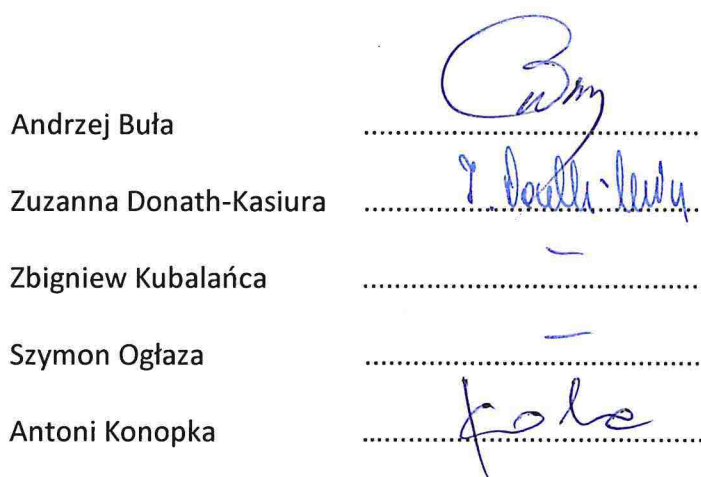 Andrzej Buła ........................................
Zuzanna Donath-Kasiura ........................................
Zbigniew Kubalańca ........................................ –
Szymon Ogłaza ........................................ –
Antoni Konopka ........................................